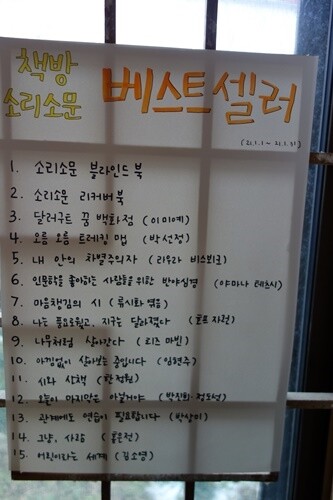 책방
소리소문
베스트셀러
(21.1.1 ~ 21.1.31)
1. 소리소문 블라인드 북
2. 소리소문 리커버 북
3. 달러구트 꿈 백화점 (이미예)
4. 오름 오름 트레킹 맵 (박선정)
5. 내 안의 차별주의자 (라우라 비스뵈크)
6. 인문학을 좋아하는 사람들을 위한 반야심경 (야마나 테츠시)
7. 마음챙김의 시 (류시화 엮음)
8. 나는 풍요로웠고, 지구는 달라졌다 (호프 자런)
9. 나무처럼 살아간다 (리즈 마빈)
10. 아낌없이 살아보는 중입니다 (임현주)
11. 시와 산책 (한정원)
12. 오늘이 마지막은 아닐거야 (박진희·정도선)
13. 관계에도 연습이 필요합니다 (박상미)
14. 그냥, 사람 (홍은전)
15. 어린이라는 세계 (김소영)